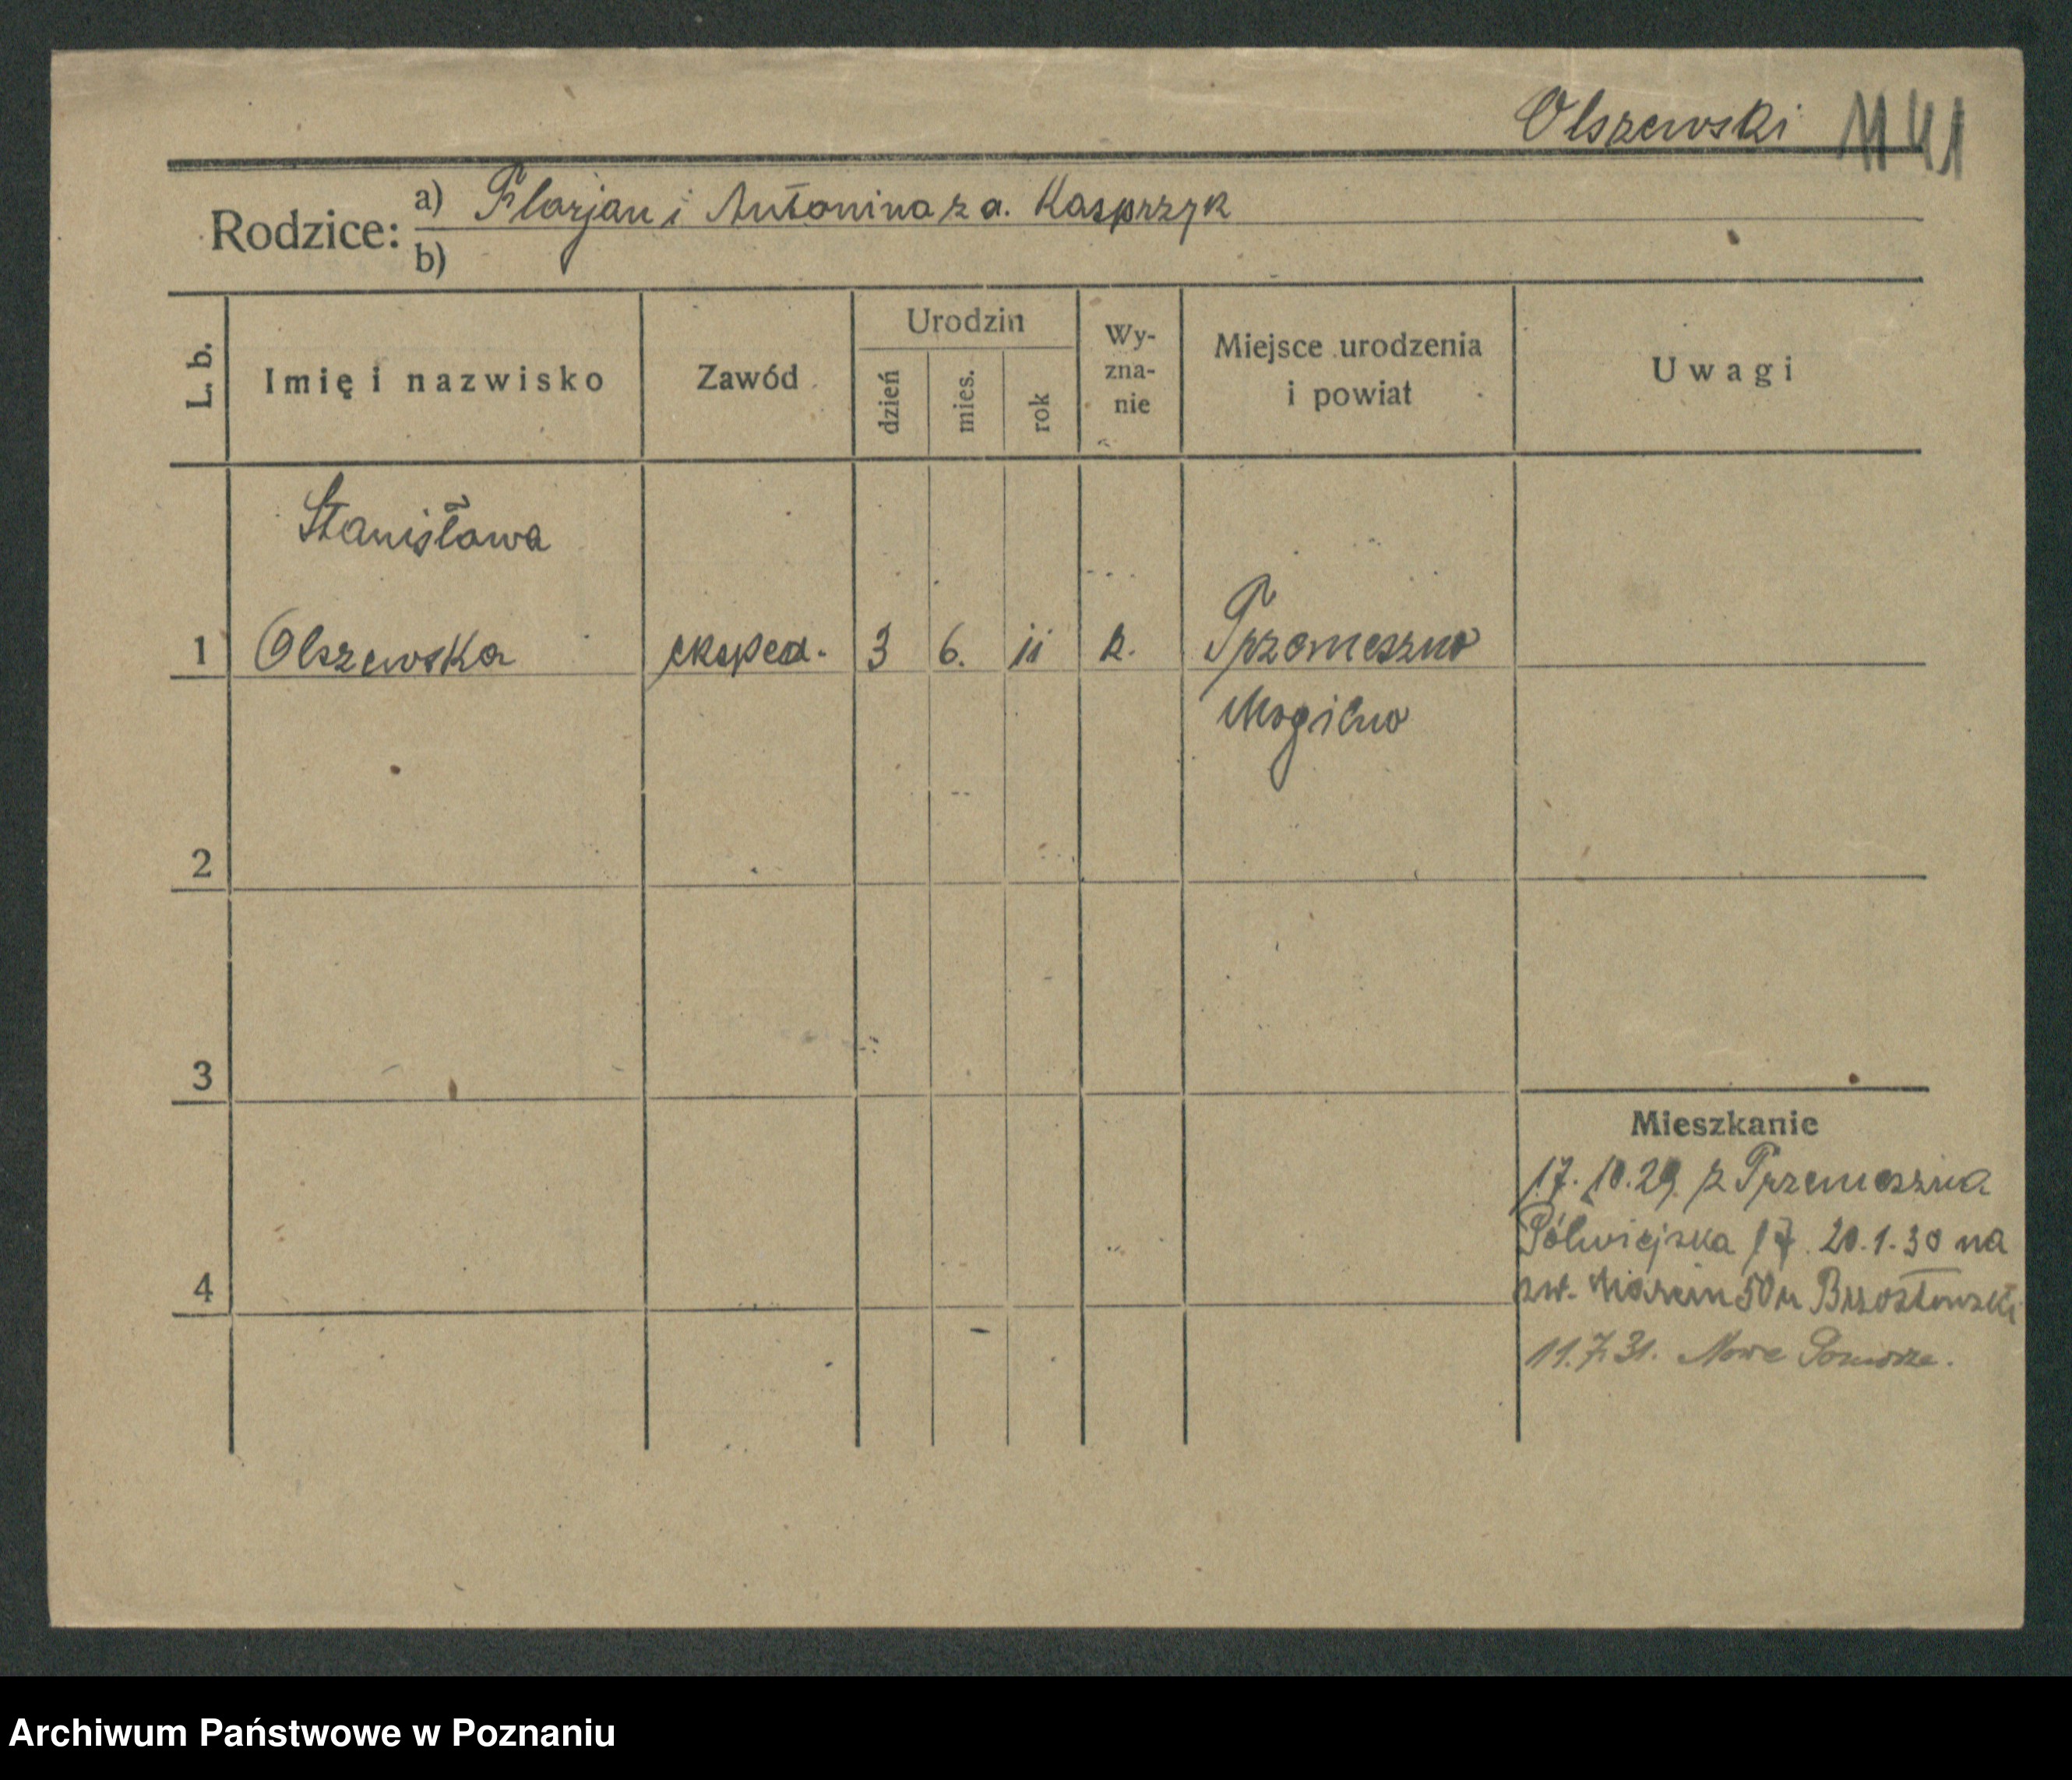 Olszewski 1141
Rodzice: a) Florjan i Antonina z d. Kasprzyk
b)
L. b.
Imię i nazwisko
Zawód
Urodzin
dzień
mies.
rok
Wy-
zna-
nie
Miejsce urodzenia
i powiat
Uwagi
Stanisława
1 Olszewska eksped. 3 6. 11 k. Przemeszno
Mogilno
2
3
Mieszkanie
17.10.29 z Przemeszna
Półwiejska 17. 20.1.30 na
4
św. Marcin 50 u Brzostowski
11.7.31. Nowe Pomorze.
Archiwum Państwowe w Poznaniu